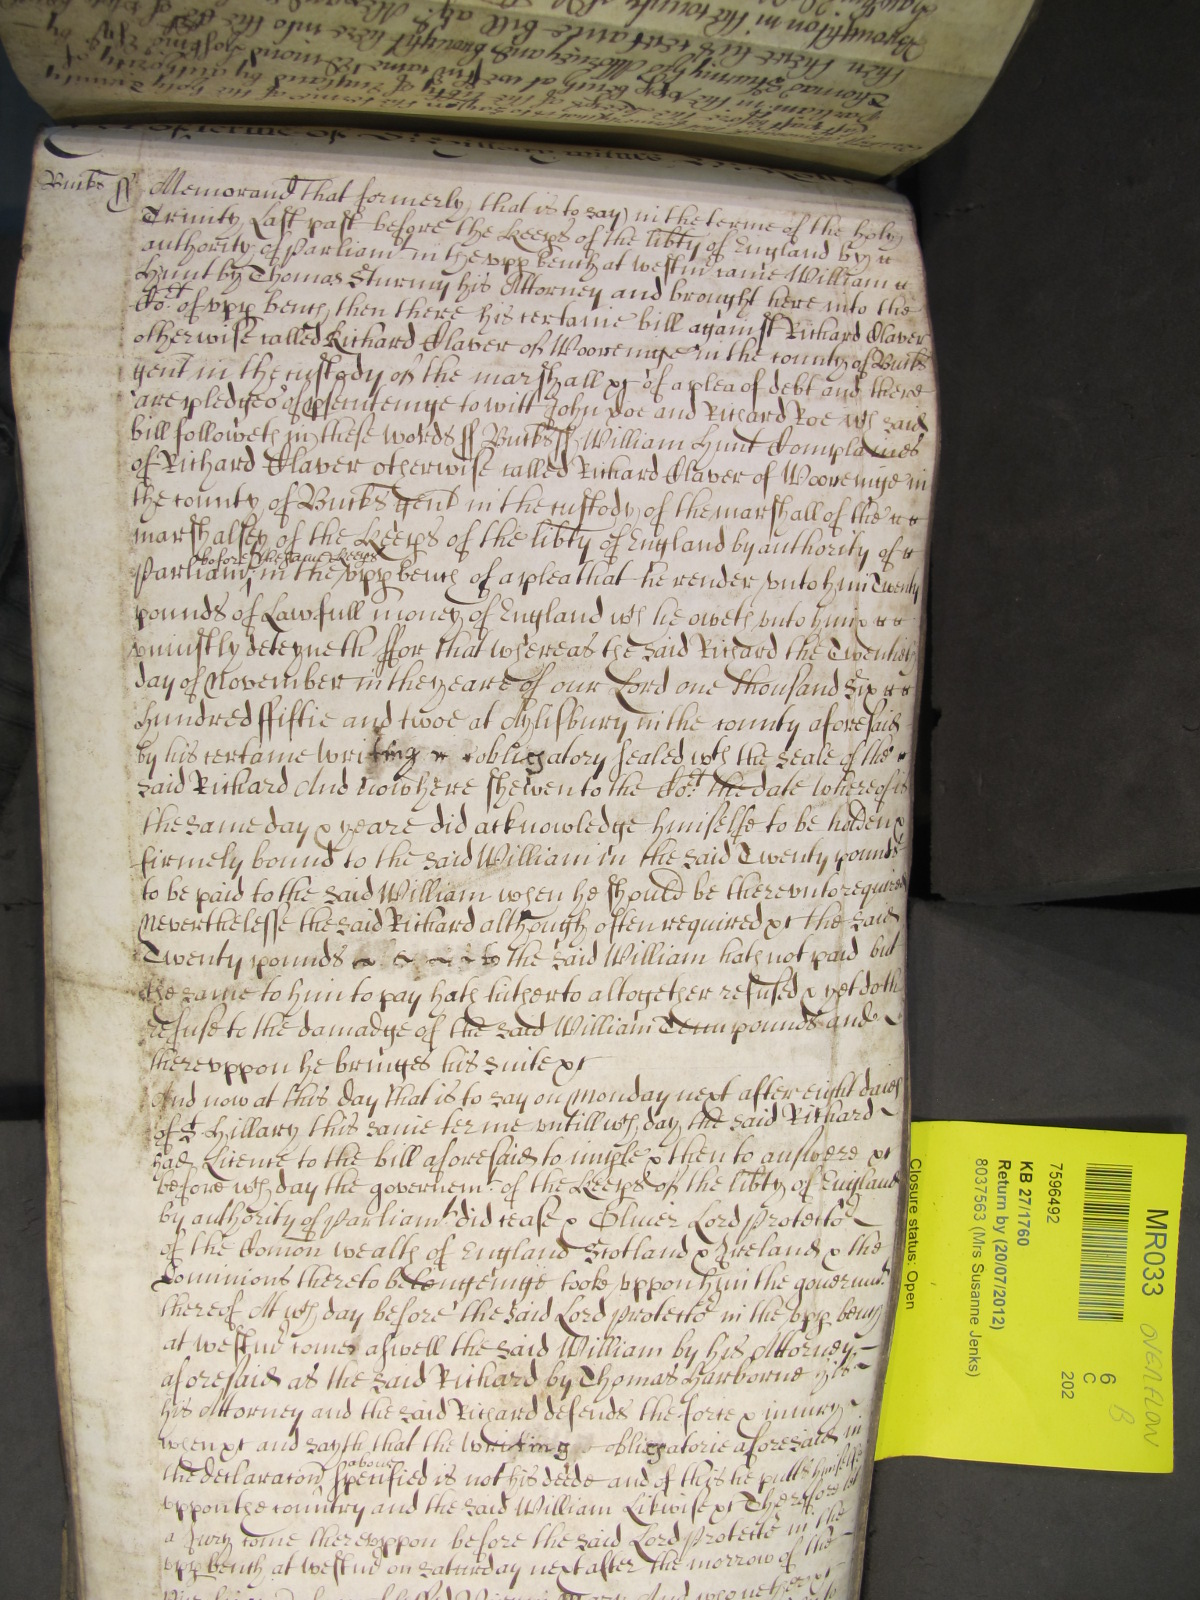 Bucks ss Memorand that formerly that is to say in the terme of the holy
Trinity Last past before the Keeps of the libty of England by
authority of Parliamt in the upp bench at Westm came William
Hunt by Thomas Sturmy his Attorney and brought here into the
Cort of upp bench then there his certaine bill against Richard Claver
otherwise called Richard Claver of Wooremge in the county of Bucks
gent in the custody of the marshall &c of a plea of debt and there
are pledges of psecuteinge to witt John Doe and Richard Roe wch said
bill followeth in these words ss Bucks ss William Hunt Complaines
of Richard Claver otherwise called Richard Claver of Wooremge in
the county of Bucks gent in the custody of the marshall of the
marshalsey of the Keeps of the libty of England by authority of
before the same Keeps
Parliamt in the upp bench of a plea that he render unto him Twenty
pounds of Lawfull money of England wch he oweth unto him &
uniustly deteyneth ffor that whereas the said Richard the Twentieth
day of November in the yeare of our Lord one thousand Six
hundred ffiftie and twoe at Aylisbury in the county aforesaid
by his certaine writing obligatory sealed wth the seale of the
said Richard And now here shewen to the Cort the date whereof is
the same day & yeare did acknowledge himselfe to be holden &
firmely bound to the said William in the said Twenty pounds
to be paid to the said William when he should be thereunto required
Neverthelesse the said Richard although often required &c the said
Twenty pounds to the said William hath not paid but
the same to him to pay hath hitherto altogether refused & yet doth
refuse to the damadge of the said William Tenn pounds and
thereuppon he bringes his suite &c
And now at this day that is to say on Monday next after eight daies
of St Hillary this same terme untill wch day the said Richard
had Licence to the bill aforesaid to imple & then to answere &c
before wch day the governemt of the Keeps of the libty of England
by authority of Parliamt did cease & Oliver Lord Protector
of the Comon wealth of England Scotland & Ireland & the
Dominions thereto belongeinge tooke uppon him the governmt
thereof At wch day before the said Lord Protector in the upp bench
at Westm comes aswell the said William by his Attorney
aforesaid as the said Richard by Thomas Harborne his
his Attorney and the said Richard defends the force & iniury
when &c and sayth that the writing obligatorie aforesaid in
above
the declaracon specified is not his deede and of this he putts himselfe
uppon the country and the said William Likwise &c Therefore let
a Jury come thereuppon before the said Lord Protector in the
upp bench at Westm on Saturday next after the morrow of the
MR033
OVERFLOW
B
6
C
202
7596492
KB 27/1760
Return by (20/07/2012)
8037563 (Mrs Susanne Jenks)
Closure status: Open